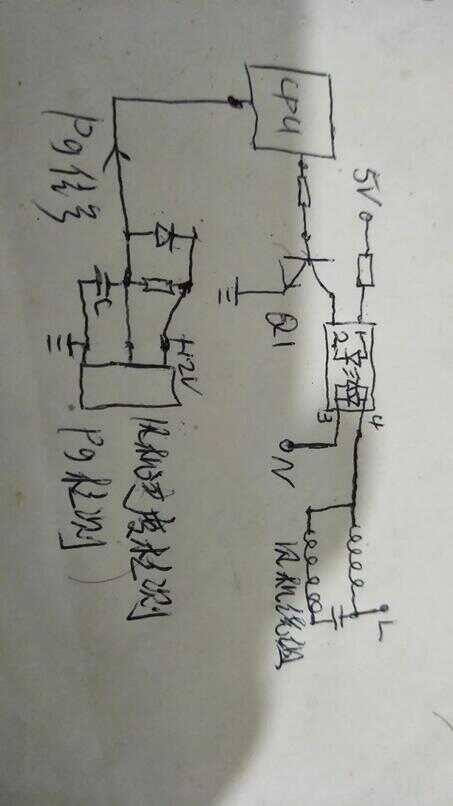 CPU
5V
1
2
3
4
Q1
N
L
风机绕组
Pg信号
C
+12V
风机速度检测
Pg检测